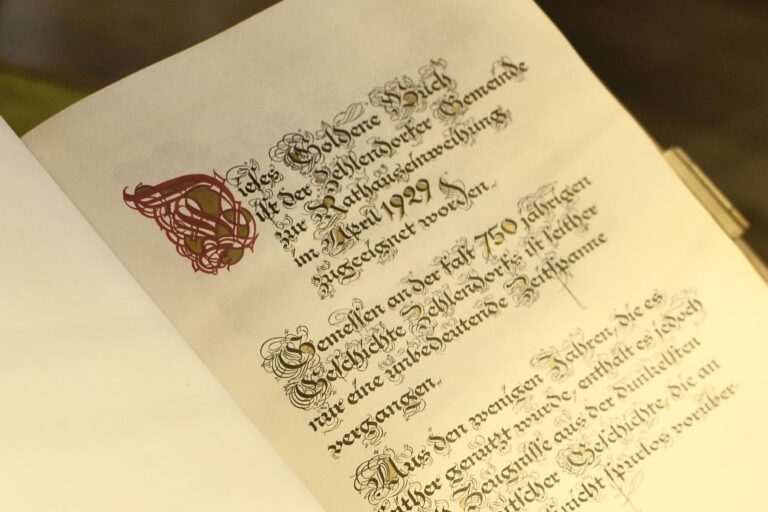 Dieses Goldene Buch
ist der Zehlendorfer Gemeinde
zur Rathauseinweihung
im April 1929
zugeeignet worden.
Gemessen an der fast 750 jährigen
Geschichte Zehlendorfs ist seither
nur eine unbedeutende Zeitspanne
vergangen.
Aus den wenigen Jahren, die es
genutzt wurde, enthält es jedoch
Zeugnisse aus der dunkelsten
Geschichte, die an
nicht spurlos vorüber